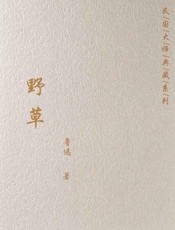 民国大师典藏系列
野草
鲁迅 著